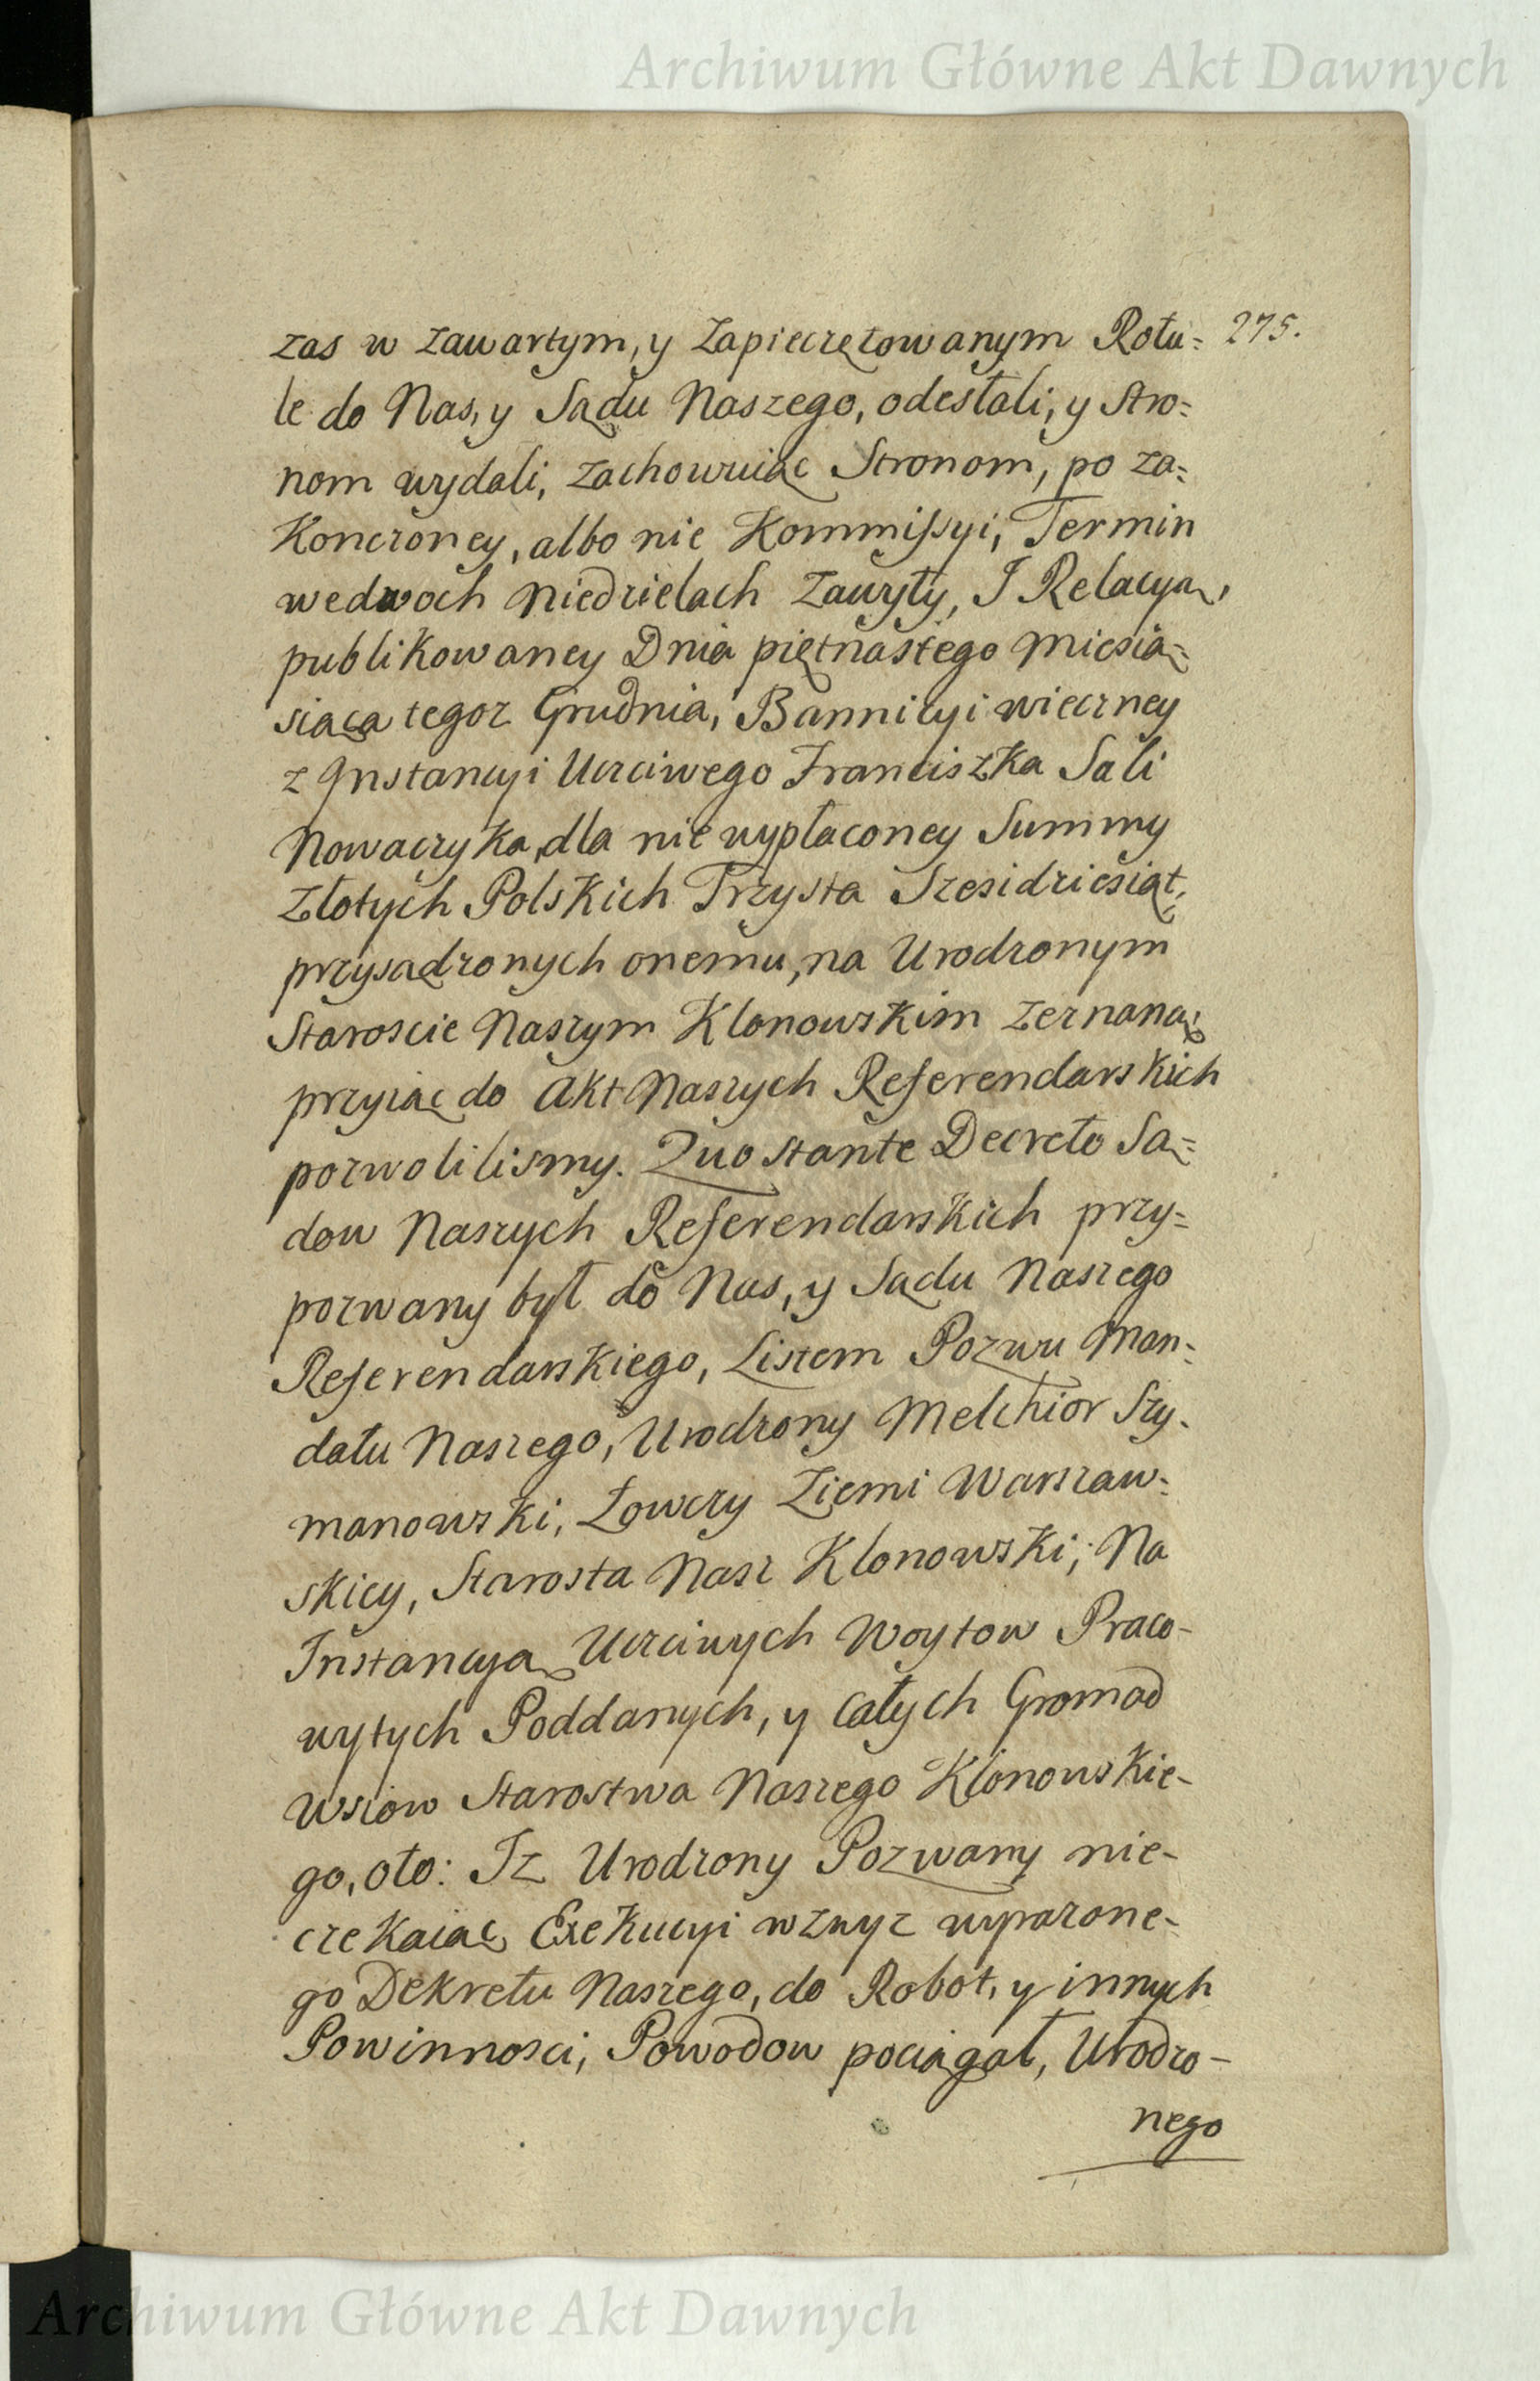 Archiwum Główne Akt Dawnych
275.
zas w zawartym, y zapieczętowanym Rotu=
le do Nas, y Sądu Naszego, odesłali, y Stro=
nom wydali, zachowuiąc Stronom, po za=
konczoney, albo nie Kommissyi, Termin
wedwoch Niedzielach zawyty, I Relacyą,
publikowaney Dnia piętnastego Miesią=
siąca tegoz Grudnia, Bannicyi wieczney
z Instancyi Uczciwego Franciszka Sali
Nowaczyka, dla nie wypłaconey Summy
Złotych Polskich Trzysta Szesidziesiąt,
przysądzonych onemu, na Urodzonym
Staroscie Naszym Klonowskim zeznaną,
przyiąc do Akt Naszych Referendarskich
pozwolilismy. Quo stante Decreto Są=
dow Naszych Referendarskich przy=
pozwany był do Nas, y Sądu Naszego
Referendarskiego, Listem Pozwu Man=
datu Naszego, Urodzony Melchior Szy=
manowski, Łowczy Ziemi Warszaw=
skiey, Starosta Nasz Klonowski, Na
Instancyą Uczciwych Woytow Praco-
wytych Poddanych, y całych Gromad
Wsiow Starostwa Naszego Klonowskie-
go, oto: Iz Urodzony Pozwany nie-
czekaiąc Exekucyi wzwyz wyrazone-
go Dekretu Naszego, do Robot, y innych
Powinnosci, Powodow pociągał, Urodzo-
nego
Archiwum Główne Akt Dawnych